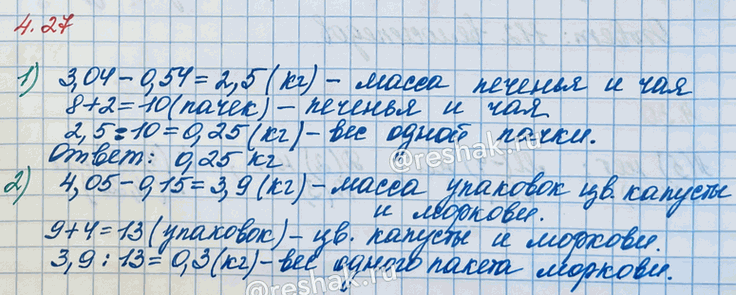 4.27
1) 3,04 – 0,54 = 2,5 (кг) – масса печенья и чая
8 + 2 = 10 (пачек) – печенья и чая
2,5 : 10 = 0,25 (кг) – вес одной пачки.
Ответ: 0,25 кг
©reshak.ru
2) 4,05 – 0,15 = 3,9 (кг) – масса упаковок цв. капусты
и моркови.
9 + 4 = 13 (упаковок) – цв. капусты и моркови.
3,9 : 13 = 0,3 (кг) – вес одного пакета моркови.
©reshak.ru